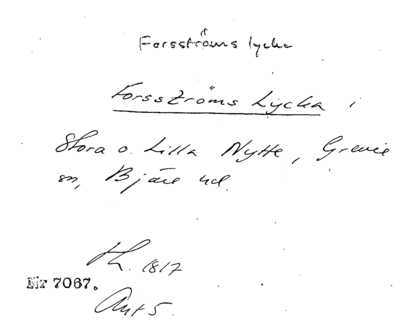 Forsströms lycka
Forsströms Lycka i
Stora o. Lilla Nytte, Grevie
sn, Bjäre hd.
1817
Nr 7067.
Ant 5.